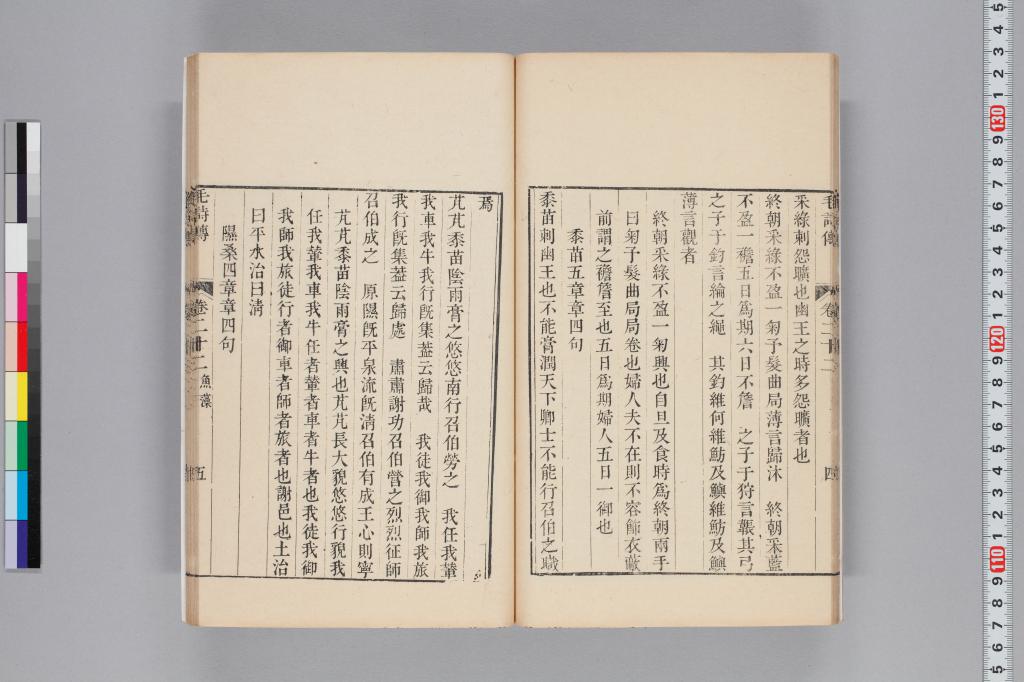 毛詩傳 卷二十二 四
采綠刺怨曠也幽王之時多怨曠者也
終朝采綠不盈一匊予髮曲局薄言歸沐 終朝采藍
不盈一襜五日爲期六日不詹 之子于狩言韔其弓
之子于釣言綸之繩 其釣維何維魴及鱮維魴及鱮
薄言觀者
終朝采綠不盈一匊興也自旦及食時爲終朝兩手
曰匊予髮曲局局卷也婦人夫不在則不容飾衣蔽
前謂之襜詹至也五日爲期婦人五日一御也
黍苗五章章四句
黍苗刺幽王也不能膏潤天下卿士不能行召伯之職
焉
芃芃黍苗陰雨膏之悠悠南行召伯勞之 我任我輦
我車我牛我行旣集蓋云歸哉 我徒我御我師我旅
我行旣集蓋云歸處 肅肅謝功召伯營之烈烈征師
召伯成之 原隰旣平泉流旣淸召伯有成王心則寧
芃芃黍苗陰雨膏之興也芃芃長大貌悠悠行貌我
任我輦我車我牛任者輦者車者牛者也我徒我御
我師我旅徒行者御車者師者旅者也謝邑也土治
曰平水治曰淸
隰桑四章章四句
毛詩傳 卷二十二 魚藻 五